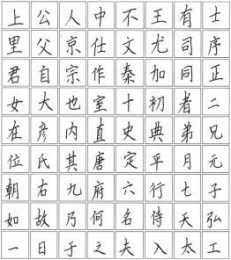 上公人中不王有士
里父京仕文尤司序
君自宗作秦加同正
女大也室十初者二
在彦内直史典弟兄
位氏其唐定平月元
朝右九府六行七子
如故乃何名侍天弘
一日于之夫入太工